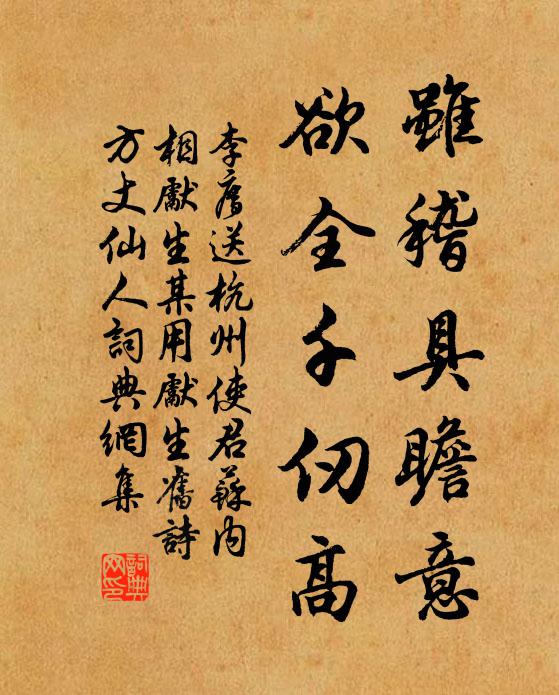 雖稽具瞻意
欲全千仞高
李廌送杭州使君蘇内
相獻生某用獻生舊詩
方丈仙人詞典網集
詞典网印